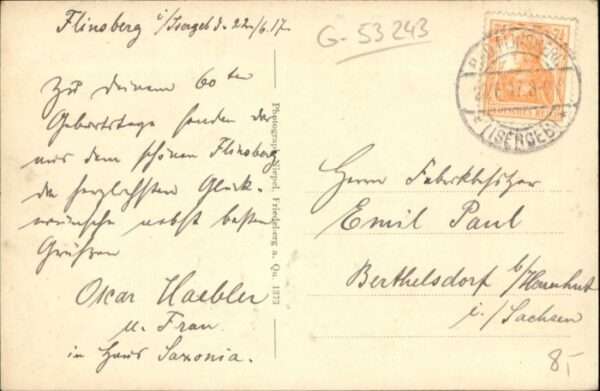 Flinsberg i/Isergeb d. 22/6.17.
G-53243
Zu deinem 60ten
Geburtstage senden dir
aus dem schönen Flinsberg
die herzlichsten Glück-
wünsche nebst besten
Grüßen
Oskar Haebler
u. Frau
in Haus Saxonia.
Photograph Niepel, Friedeberg a. Qu. 1373
BAD FLINSBERG
(ISERGEB)
DEUTSCHES REICH
Herrn Fabrikbesitzer
Emil Paul
Berthelsdorf b/Herrnhut
i./Sachsen
8,-